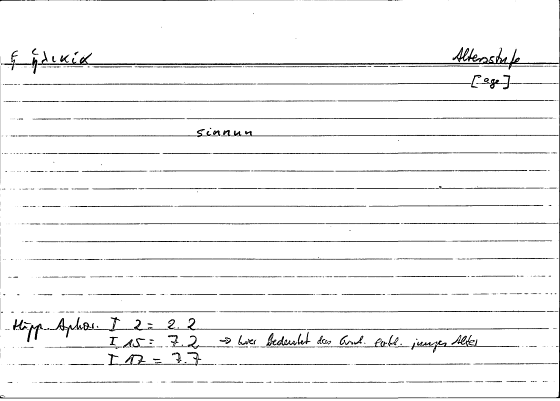 ἡ ἡλικία Altersstufe
[age]
sinnun
Hipp. Aphor. I 2 = 2.2
I 15 = 7.2 → hier bedeutet das junges Alter
I 17 = 7.7